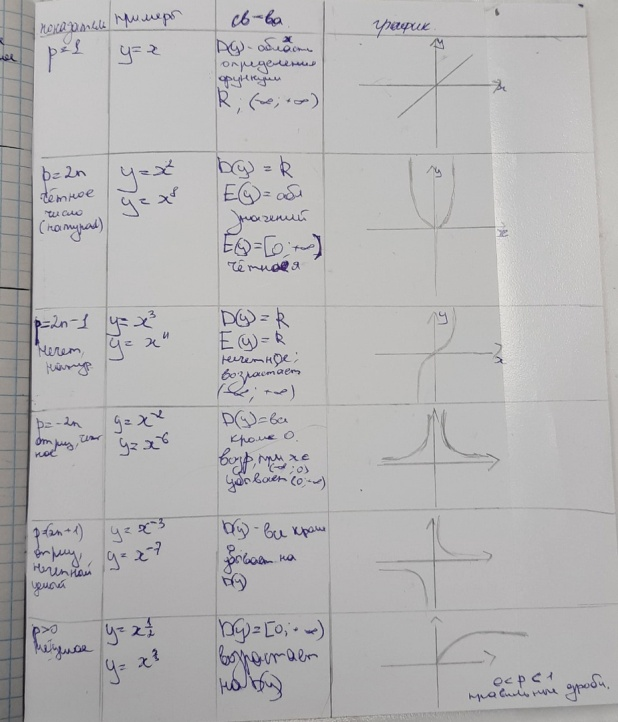 показатель примеры св-ва график
p=1
y=x
D(y)-область
определения
функции
R; (-∞; +∞)
y
x
p=2n
чётное
число
(натурал)
y=x²
y=x⁸
D(y)=R
E(y)=обл
значений
E(y)=[0;+∞)
чётная
y
x
p=2n-1
нечет,
натур.
y=x³
y=x¹¹
D(y)=R
E(y)=R
нечетное;
возрастает
(-∞; +∞)
y
x
p=-2n
отриц, чет
ное
y=x⁻²
y=x⁻⁶
D(y)=все
кроме 0.
возр, при x∈
(-∞; 0)
убывает (0;-∞)
p=-(2n+1)
отриц,
нечетный
целый
y=x⁻³
y=x⁻⁷
D(y)-все кроме
0
убывает на
D(y)
p>0
нецелое
y=x^½
D(y)=[0;+∞)
возрастает
на D(y)
0<p<1
правильные дроби.